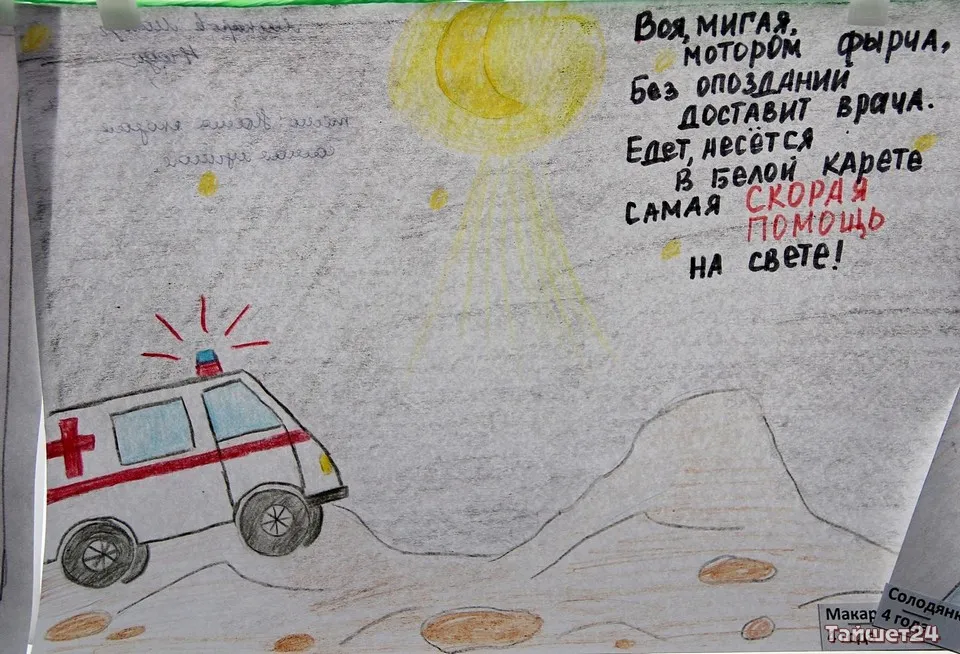 Воя, мигая,
мотором фырча,
Без опозданий
доставит врача.
Едет, несётся
в белой карете
самая СКОРАЯ
ПОМОЩЬ
на свете!
Солодянк
4 год
Макар
Тайшет24